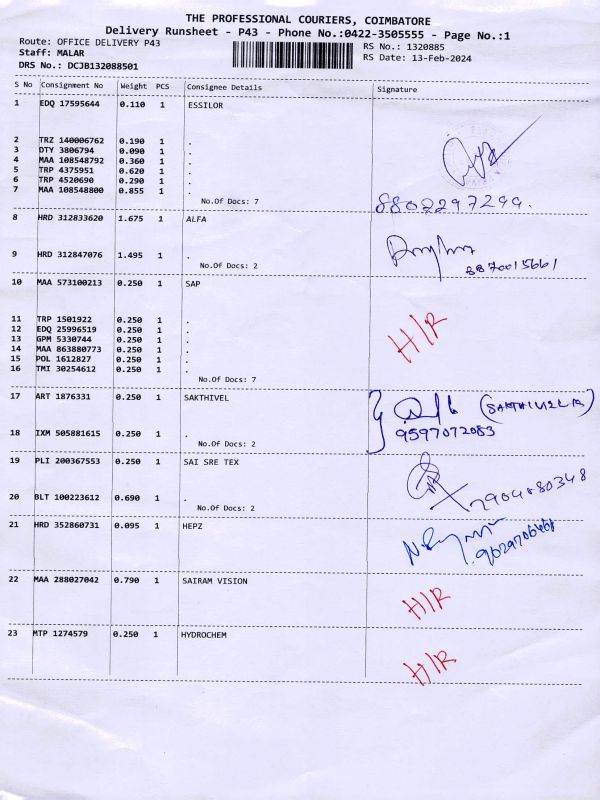 THE PROFESSIONAL COURIERS, COIMBATORE
Delivery Runsheet - P43 - Phone No.:0422-3505555 - Page No.:1
Route: OFFICE DELIVERY P43 RS No.: 1320885
Staff: MALAR RS Date: 13-Feb-2024
DRS No.: DCJB132088501
S No Consignment No Weight PCS Consignee Details Signature
1 EDQ 17595644 0.110 1 ESSILOR
2 TRZ 140006762 0.190 1 .
3 DTY 3806794 0.090 1 .
4 MAA 108548792 0.360 1 .
5 TRP 4375951 0.620 1 .
6 TRP 4520690 0.290 1 .
7 MAA 108548800 0.855 1 .
No.Of Docs: 7 8802297299.
8 HRD 312833620 1.675 1 ALFA
9 HRD 312847076 1.495 1 .
No.Of Docs: 2 8870015661
10 MAA 573100213 0.250 1 SAP
11 TRP 1501922 0.250 1 .
12 EDQ 25996519 0.250 1 .
13 GPM 5330744 0.250 1 .
14 MAA 863880773 0.250 1 .
15 POL 1612827 0.250 1 .
16 TMI 30254612 0.250 1 .
H/R
No.Of Docs: 7
17 ART 1876331 0.250 1 SAKTHIVEL
18 IXM 505881615 0.250 1 . 9597072083
No.Of Docs: 2
19 PLI 200367553 0.250 1 SAI SRE TEX
20 BLT 100223612 0.690 1 . 7904880348
No.Of Docs: 2
21 HRD 352860731 0.095 1 HEPZ
22 MAA 288027042 0.790 1 SAIRAM VISION
H/R
23 MTP 1274579 0.250 1 HYDROCHEM
H/R